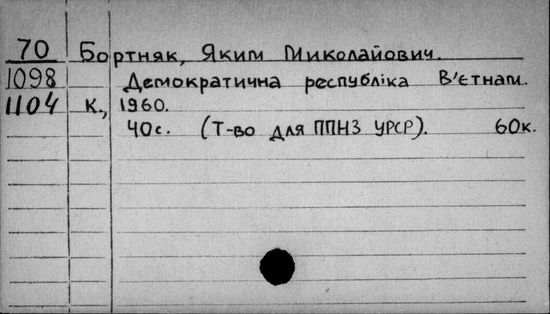 70 Бортняк, Яким Миколайович.
1098 Демократична республіка В'єтнам.
1104 К., 1960.
40с. (Т-во для ППНЗ УРСР). 60к.